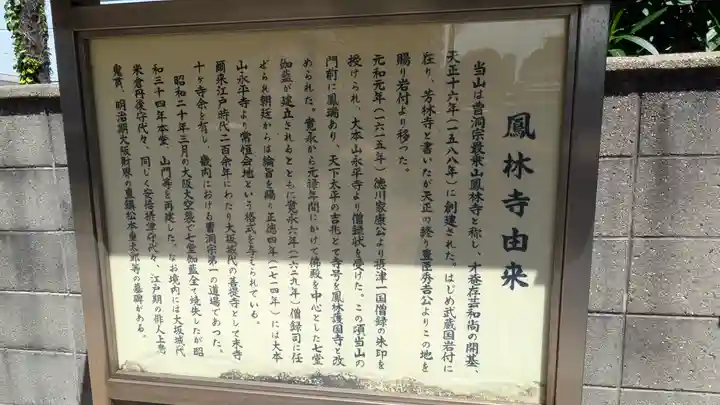 鳳林寺由来
当山は曹洞宗最乗山鳳林寺と称し、才菴存芸和尚の開基、
天正十六年（一五八八年）に創建された。はじめ武蔵国岩付に
在り、芳林寺と書いたが天正の終り豊臣秀吉公よりこの地を
賜り岩付より移つた。
元和元年（一六一五年）徳川家康公より摂津一国僧録の朱印を
授けられ、大本山永平寺より僧録状を受けた。この頃当山の
門前に鳳瑞あり、天下太平の吉兆とて寺号を鳳林護国寺と改
められた。寛永から元禄年間にかけて佛殿を中心とした七堂
伽藍が建立されるとともに寛永六年（一六二九年）僧録司に任
ぜられ朝廷からは綸旨を賜り正徳四年（一七一四年）には大本
山永平寺より常恒会地という格式を与えられている。
爾来江戸時代二百余年にわたり大坂城代の菩提寺として末寺
十ヶ寺余を有し、畿内における曹洞宗第一の道場であった。
昭和二十年三月の大阪大空襲で七堂伽藍全て焼失したが昭
和三十四年本堂、山門等を再建した。なお境内には大坂城代
米倉丹後守代々、同じく安倍摂津守代々、江戸期の俳人上島
鬼貫、明治期大阪財界の重鎮松本重太郎等の墓碑がある。